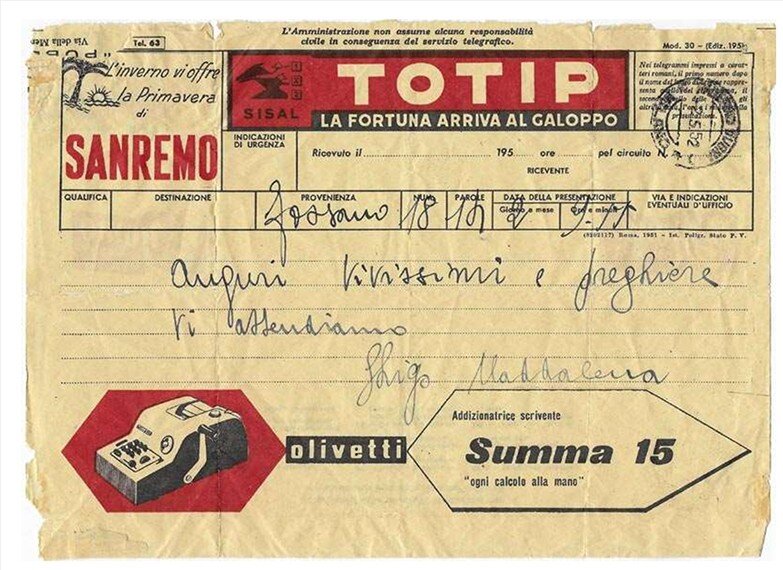 L'Amministrazione non assume alcuna responsabilità
civile in conseguenza del servizio telegrafico.
Via della
Tel. 63
Mod. 30 - (Ediz. 195
L'inverno vi offre
la Primavera
di
SANREMO
SISAL
TOTIP
LA FORTUNA ARRIVA AL GALOPPO
Nei telegrammi impressi a carat-
teri romani, il primo numero dopo
il nome del luogo
INDICAZIONI
DI URGENZA
Ricevuto il 195 ore pel circuito
RICEVENTE
QUALIFICA DESTINAZIONE PROVENIENZA NUM. PAROLE DATA DELLA PRESENTAZIONE VIA E INDICAZIONI
EVENTUALI D'UFFICIO
Giorno e mese Ore e minuti
Fossano 18
(8202117) Roma, 1951 - Ist. Poligr. Stato P. V.
Auguri vivissimi e preghiere
Vi attendiamo
Ghigo Maddalena
olivetti
Addizionatrice scrivente
Summa 15
"ogni calcolo alla mano"